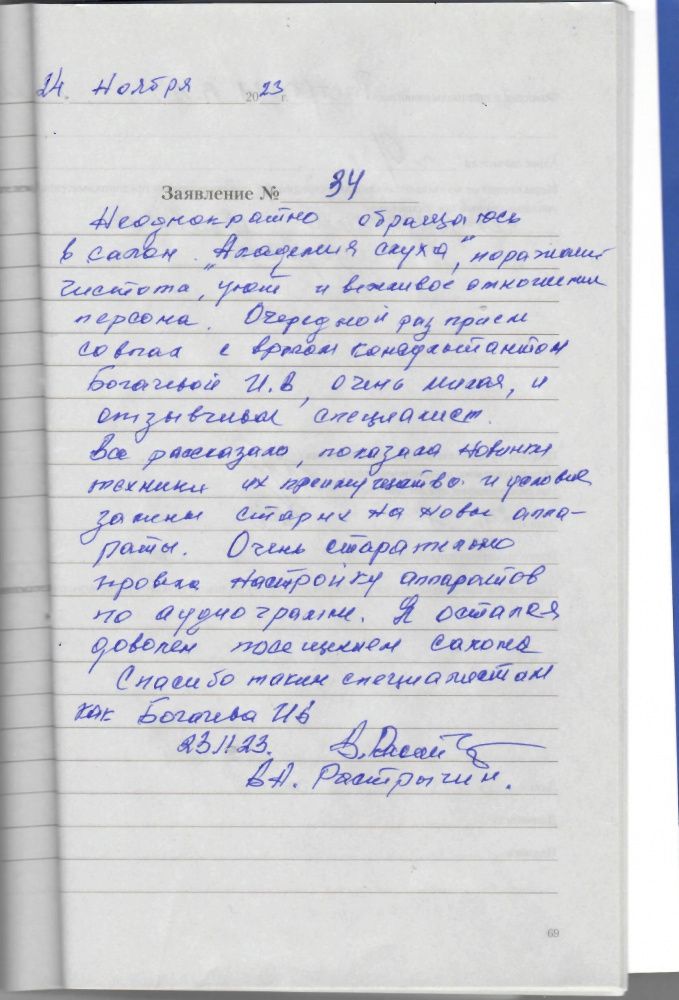 24. Ноября 2023 г.
Заявление № 34
Неоднократно обращаюсь
в салон "Академия слуха", поражает
чистота, уют и вежливое отношения
персона. Очередной раз прием
совпал с врачом
Богачевой И.В, очень милая, и
отзывчивый специалист.
Все рассказала, показала новинки
техники их преимущество и условие
замены старых на новые аппа-
раты. Очень старательно
провела настройку аппаратов
по аудиограмме. Я остался
доволен посещением салона
Спасибо таким специалистам
как Богачева ИВ
23.11.23.
В.А. Растрычин.
69